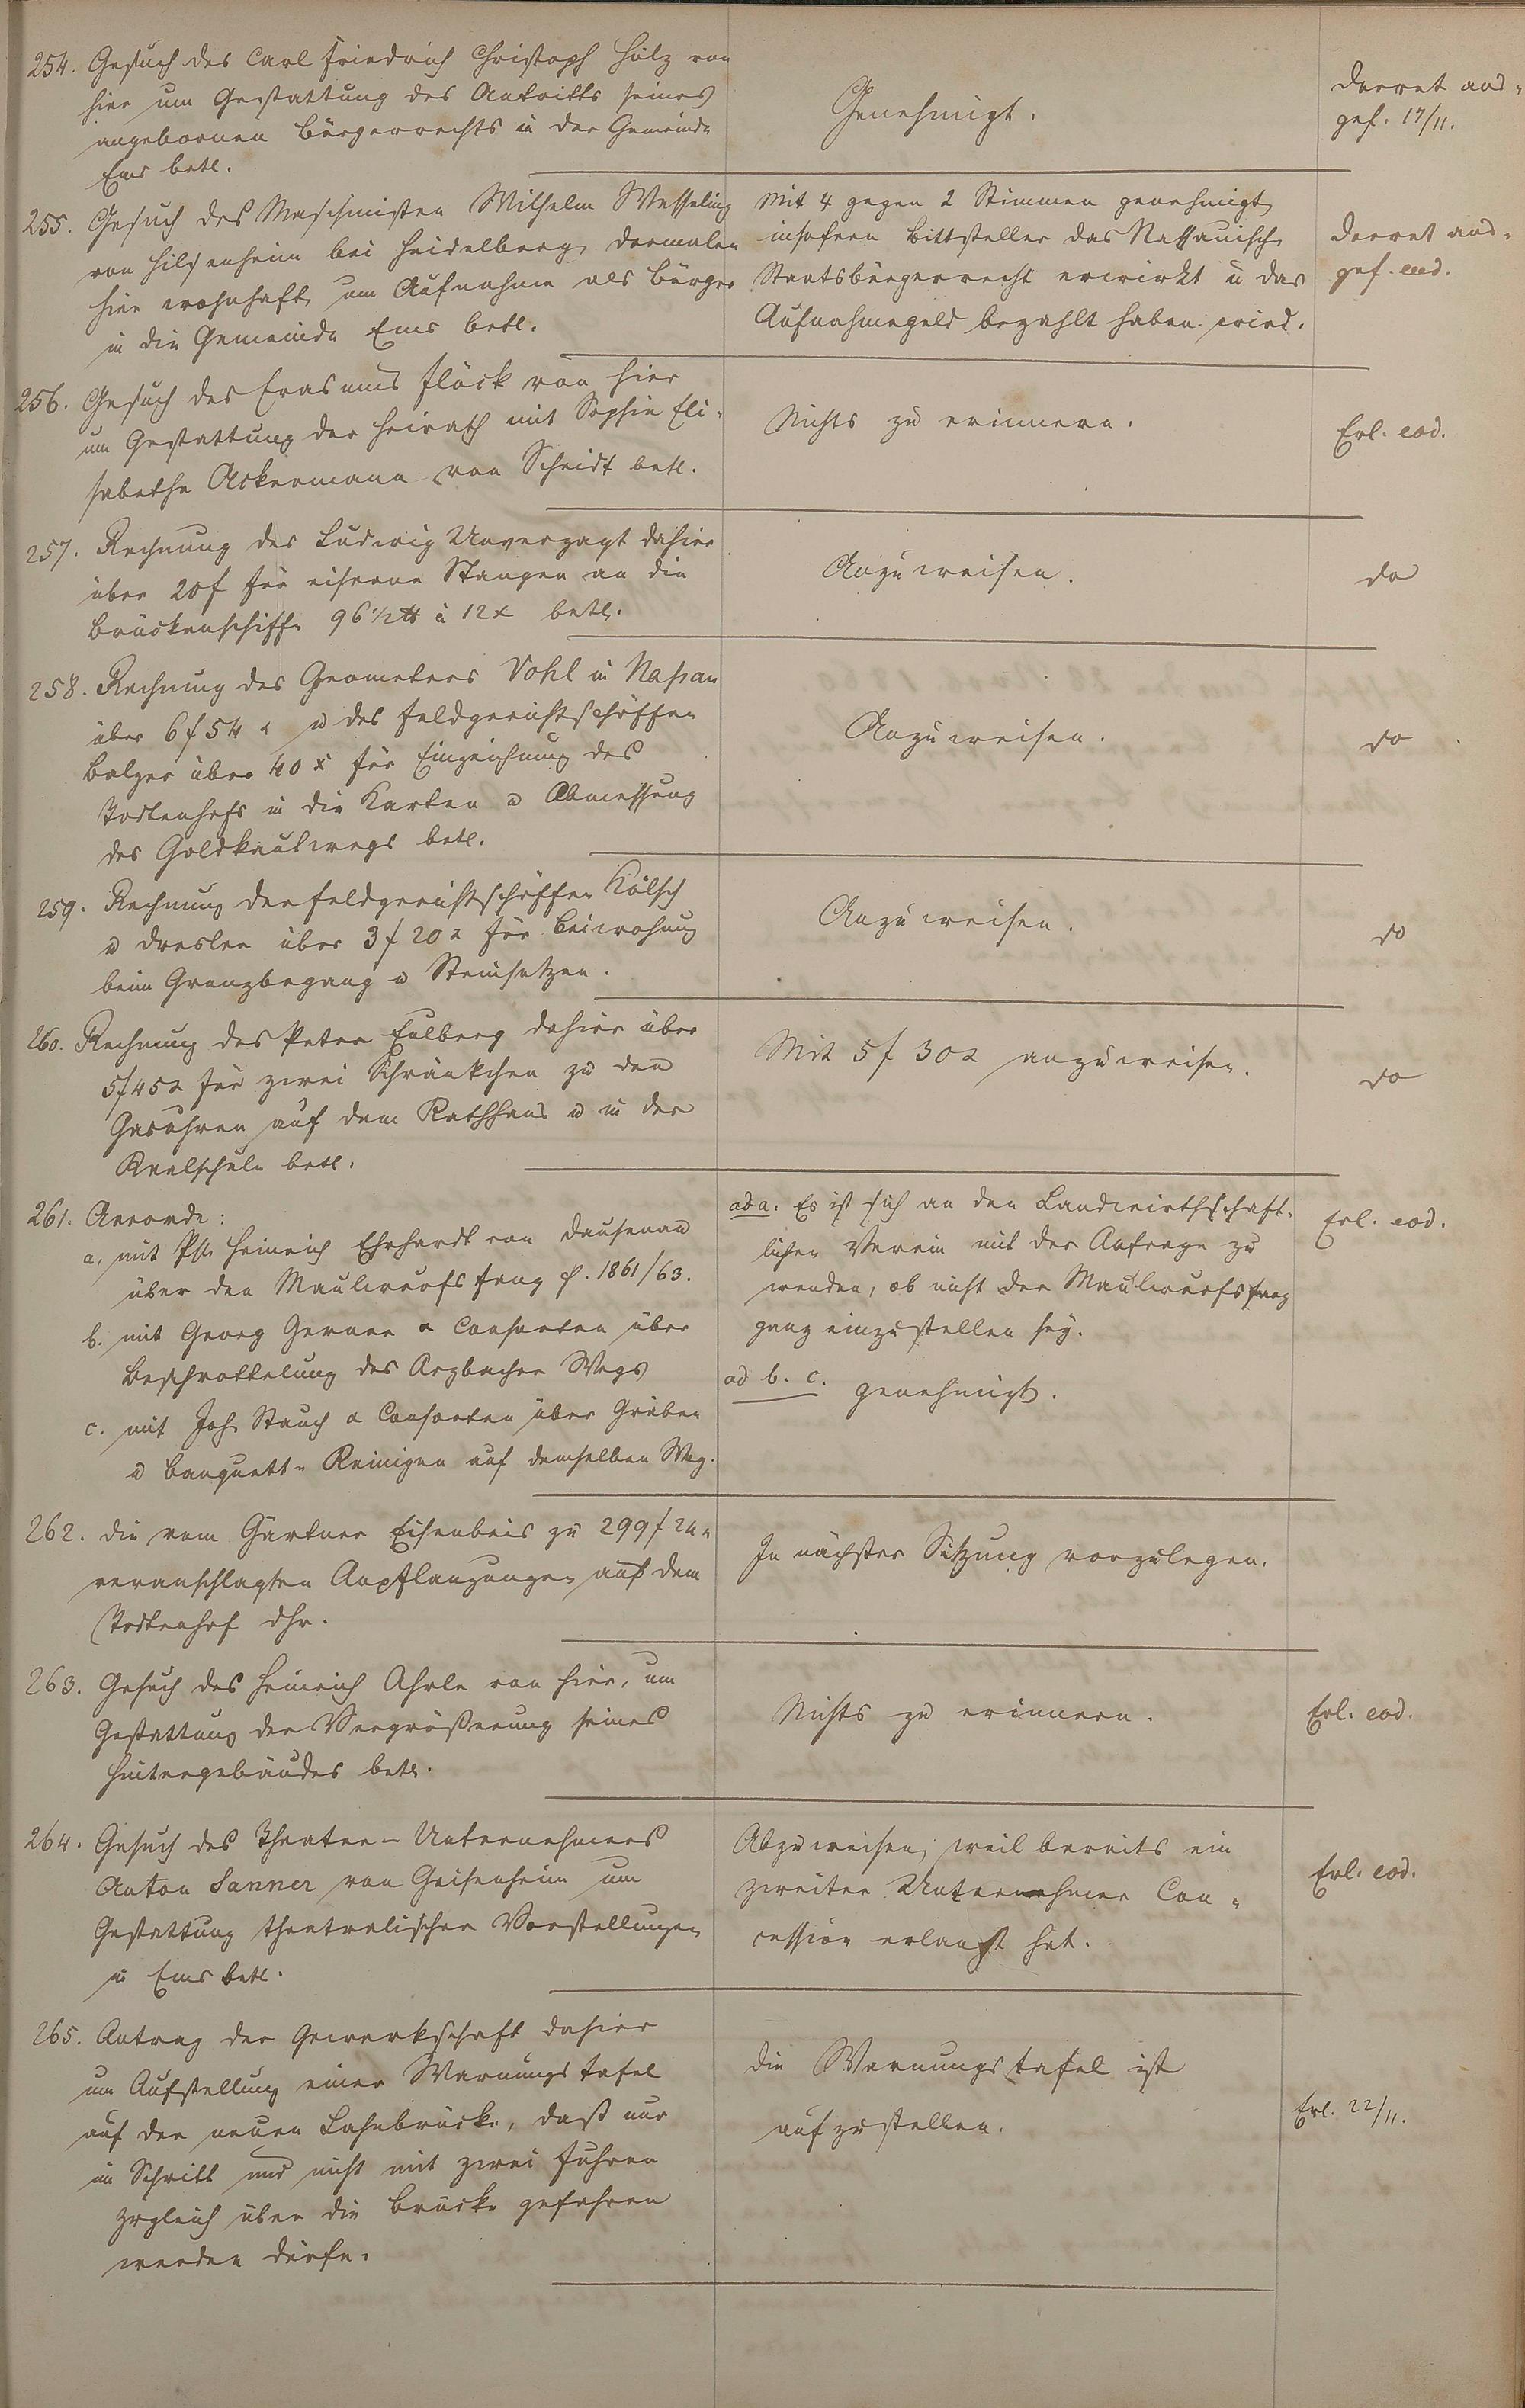 254. Gesuch des Carl Friedrich Christoph Hölz von
hier um Gestattung des Antritts seines
angebornen Bürgerrechts in der Gemeinde
Ems betl.
Genehmigt.
Decret aus-
gef. 17/11.
255. Gesuch des Maschinisten Wilhelm Wesseling
von Hilsenheim bei Heidelberg, dermalen
hier wohnhaft, um Aufnahme als Bürger
in die Gemeinde Ems betl.
Mit 4 gegen 2 Stimmen genehmigt,
insofern Bittsteller das Nassauische
Staatsbürgerrecht erwirkt u das
Aufnahmegeld bezahlt haben wird.
Decret aus-
gef. eod.
256. Gesuch des Erasmus Flöck von hier
um Gestattung der Heirath mit Sophie Eli-
sabethe Ackermann von Scheidt betl.
Nichts zu erinnern.
Erl. eod.
257. Rechnung des Ludwig Unverzagt dahier
über 20 f für eiserne Stangen an die
Brückenschiffe 96 1/2 ℔ à 12 x betl.
Anzuweisen.
do
258. Rechnung des Geometers Vohl in Nassau
über 6 f 54 x u des Feldgerichtsschöffen
Balzer über 40 x für Einzeichnung des
Todtenhofs in die Karten u Abmessung
des Goldkautwegs betl.
Anzuweisen.
do
259. Rechnung der Feldgerichtsschöffen Kölsch
u Dresler über 3 f 20 x für Beiwohnung
beim Grenzbegang u Steinsetzen.
Anzuweisen.
do
260. Rechnung des Peter Eulberg dahier über
5 f 45 x für zwei Schränkchen zu den
Gasuhren auf dem Rathhaus u in der
Realschule betl.
Mit 5 f 30 x anzuweisen.
do
261. Accorde:
a, mit Ph. Heinrich Ehrhardt von Dausenau
über den Maulwurfsfang p. 1861/63.
b. mit Georg Gerner & Consorten über
Beschrottelung des Arzbacher Wegs
c. mit Joh. Stauch & Consorten über Gräben
u Banquett-Reinigen auf demselben Weg.
ad a. Es ist sich an den Landwirthschaft-
lichen Verein mit der Anfrage zu
wenden, ob nicht der Maulwurfsfang
ganz einzustellen sey.
ad b. c. genehmigt.
Erl. eod.
262. Die vom Gärtner Eisenbeis zu 299 f 24 x
veranschlagten Anpflanzungen auf dem
Todtenhof dhr.
In nächster Sitzung vorzulegen.
263. Gesuch des Heinrich Ahrle von hier, um
Gestattung der Vergrößerung seines
Hintergebäudes betl.
Nichts zu erinnern.
Erl. eod.
264. Gesuch des Theater-Unternehmers
Anton Sanner von Geisenheim um
Gestattung theatralischer Vorstellungen
in Ems betl.
Abzuweisen, weil bereits ein
zweiter Unternehmer Con-
cession erlangt hat.
Erl. eod.
265. Antrag der Gewerkschaft dahier
um Aufstellung einer Warnungstafel
auf der neuen Lahnbrücke, daß nur
im Schritt und nicht mit zwei Fuhren
zugleich über die Brücke gefahren
werden dürfe.
Die Warnungstafel ist
aufzustellen.
Erl. 22/11.